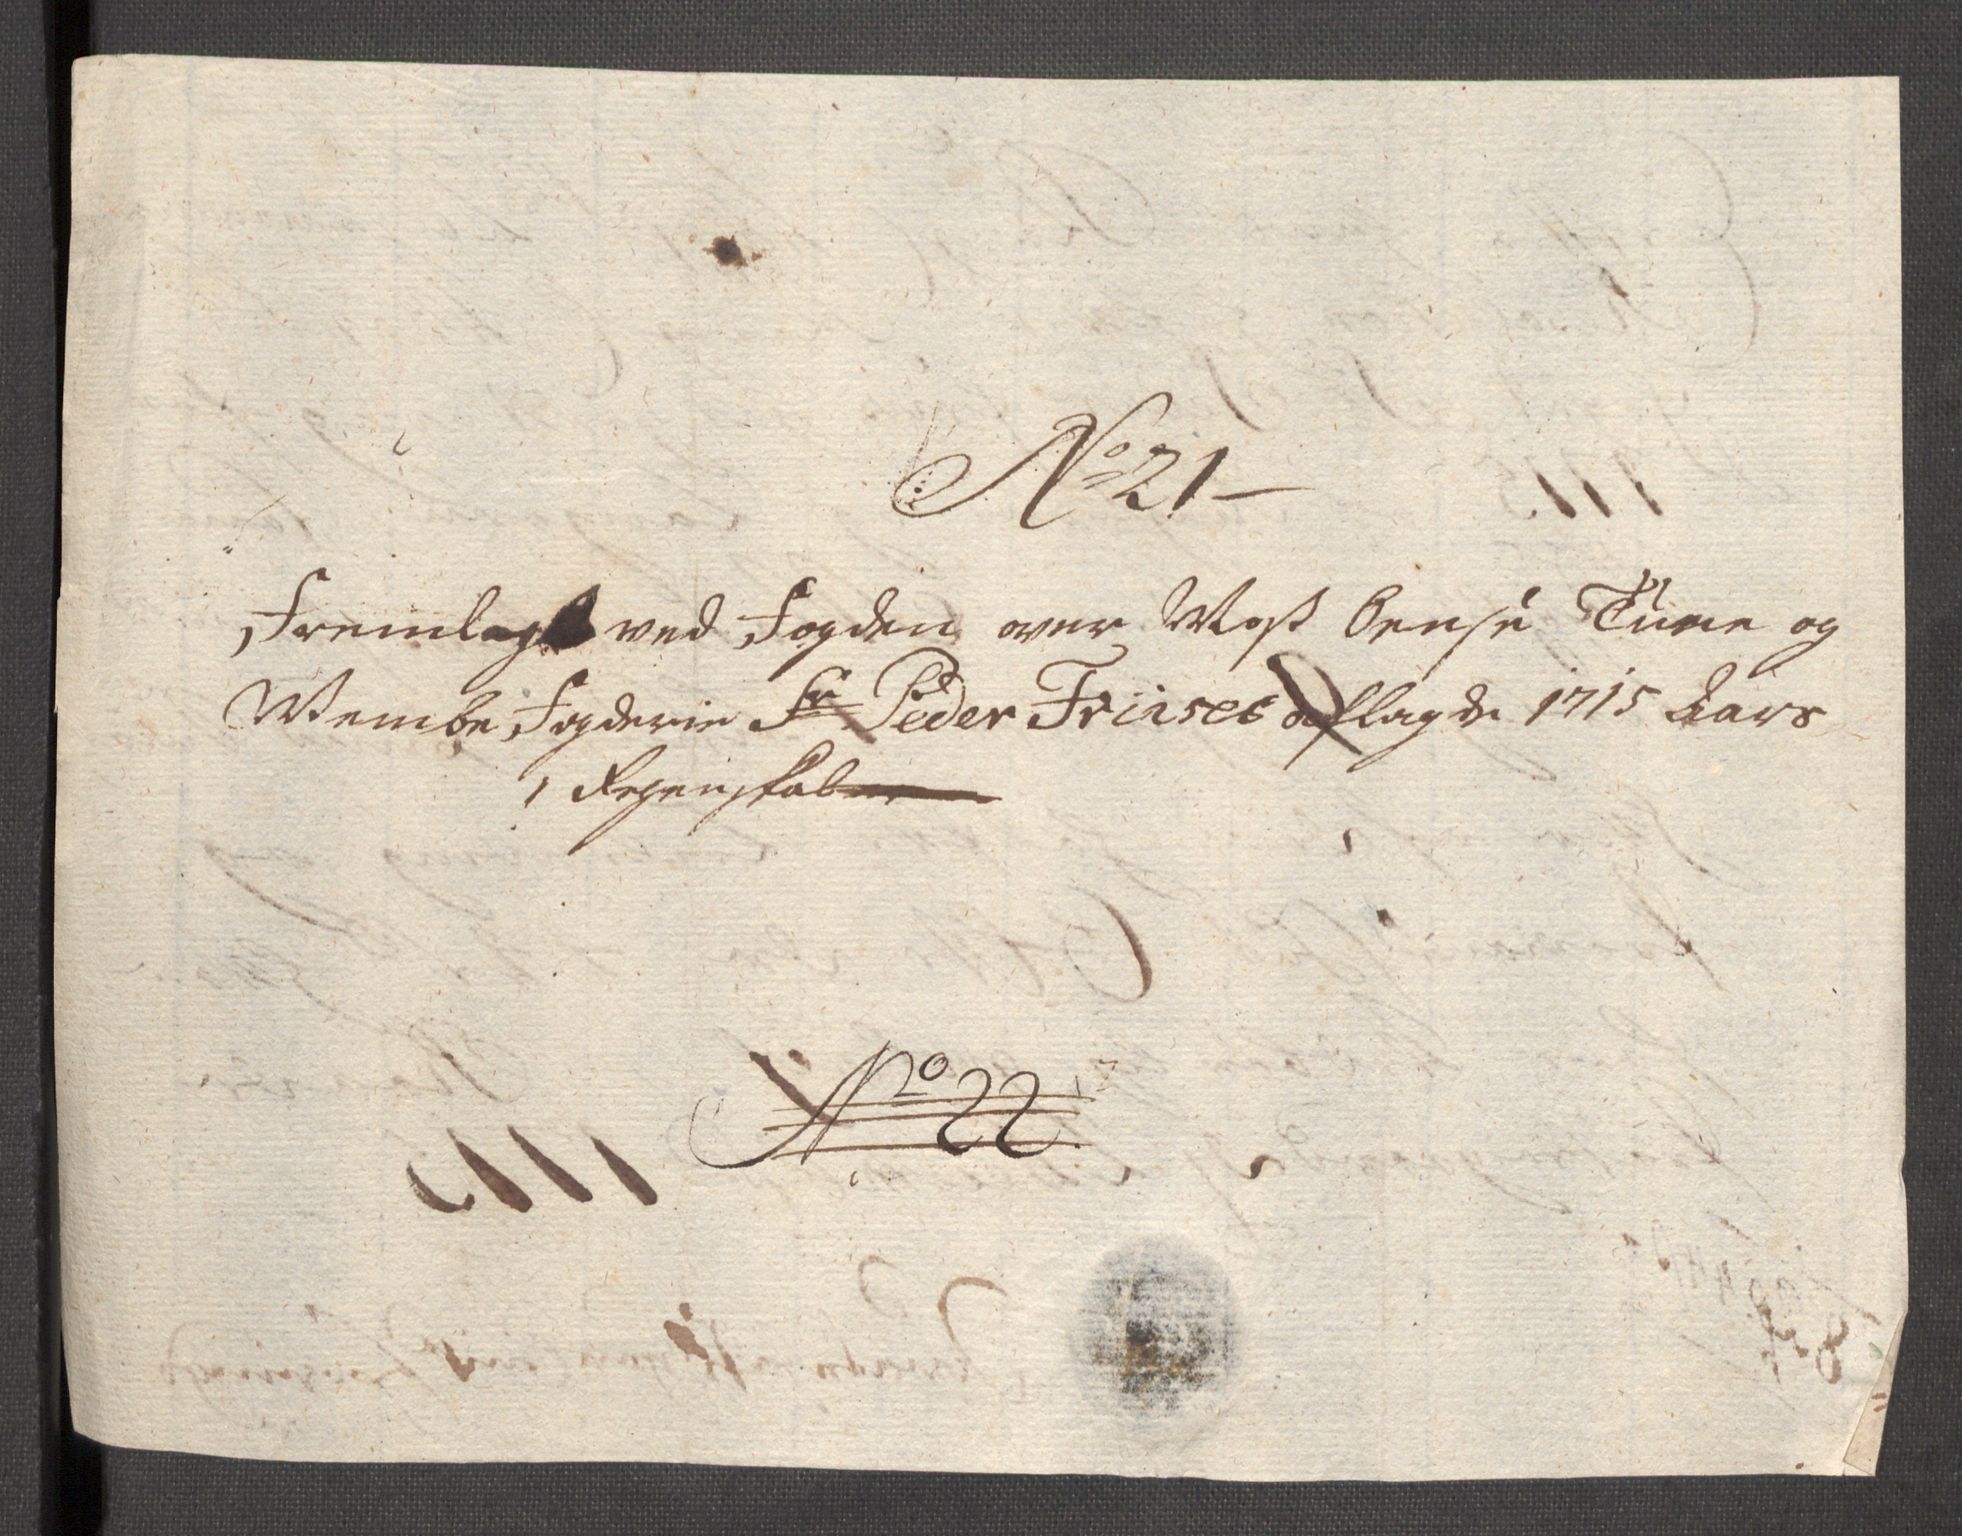 No 21
Fremlagt ved Fogden over Moss Oensøe Tune og
Wembe Fogderie Sr Peder Friises aflagde 1715 Aars
Regenskaber
No 22